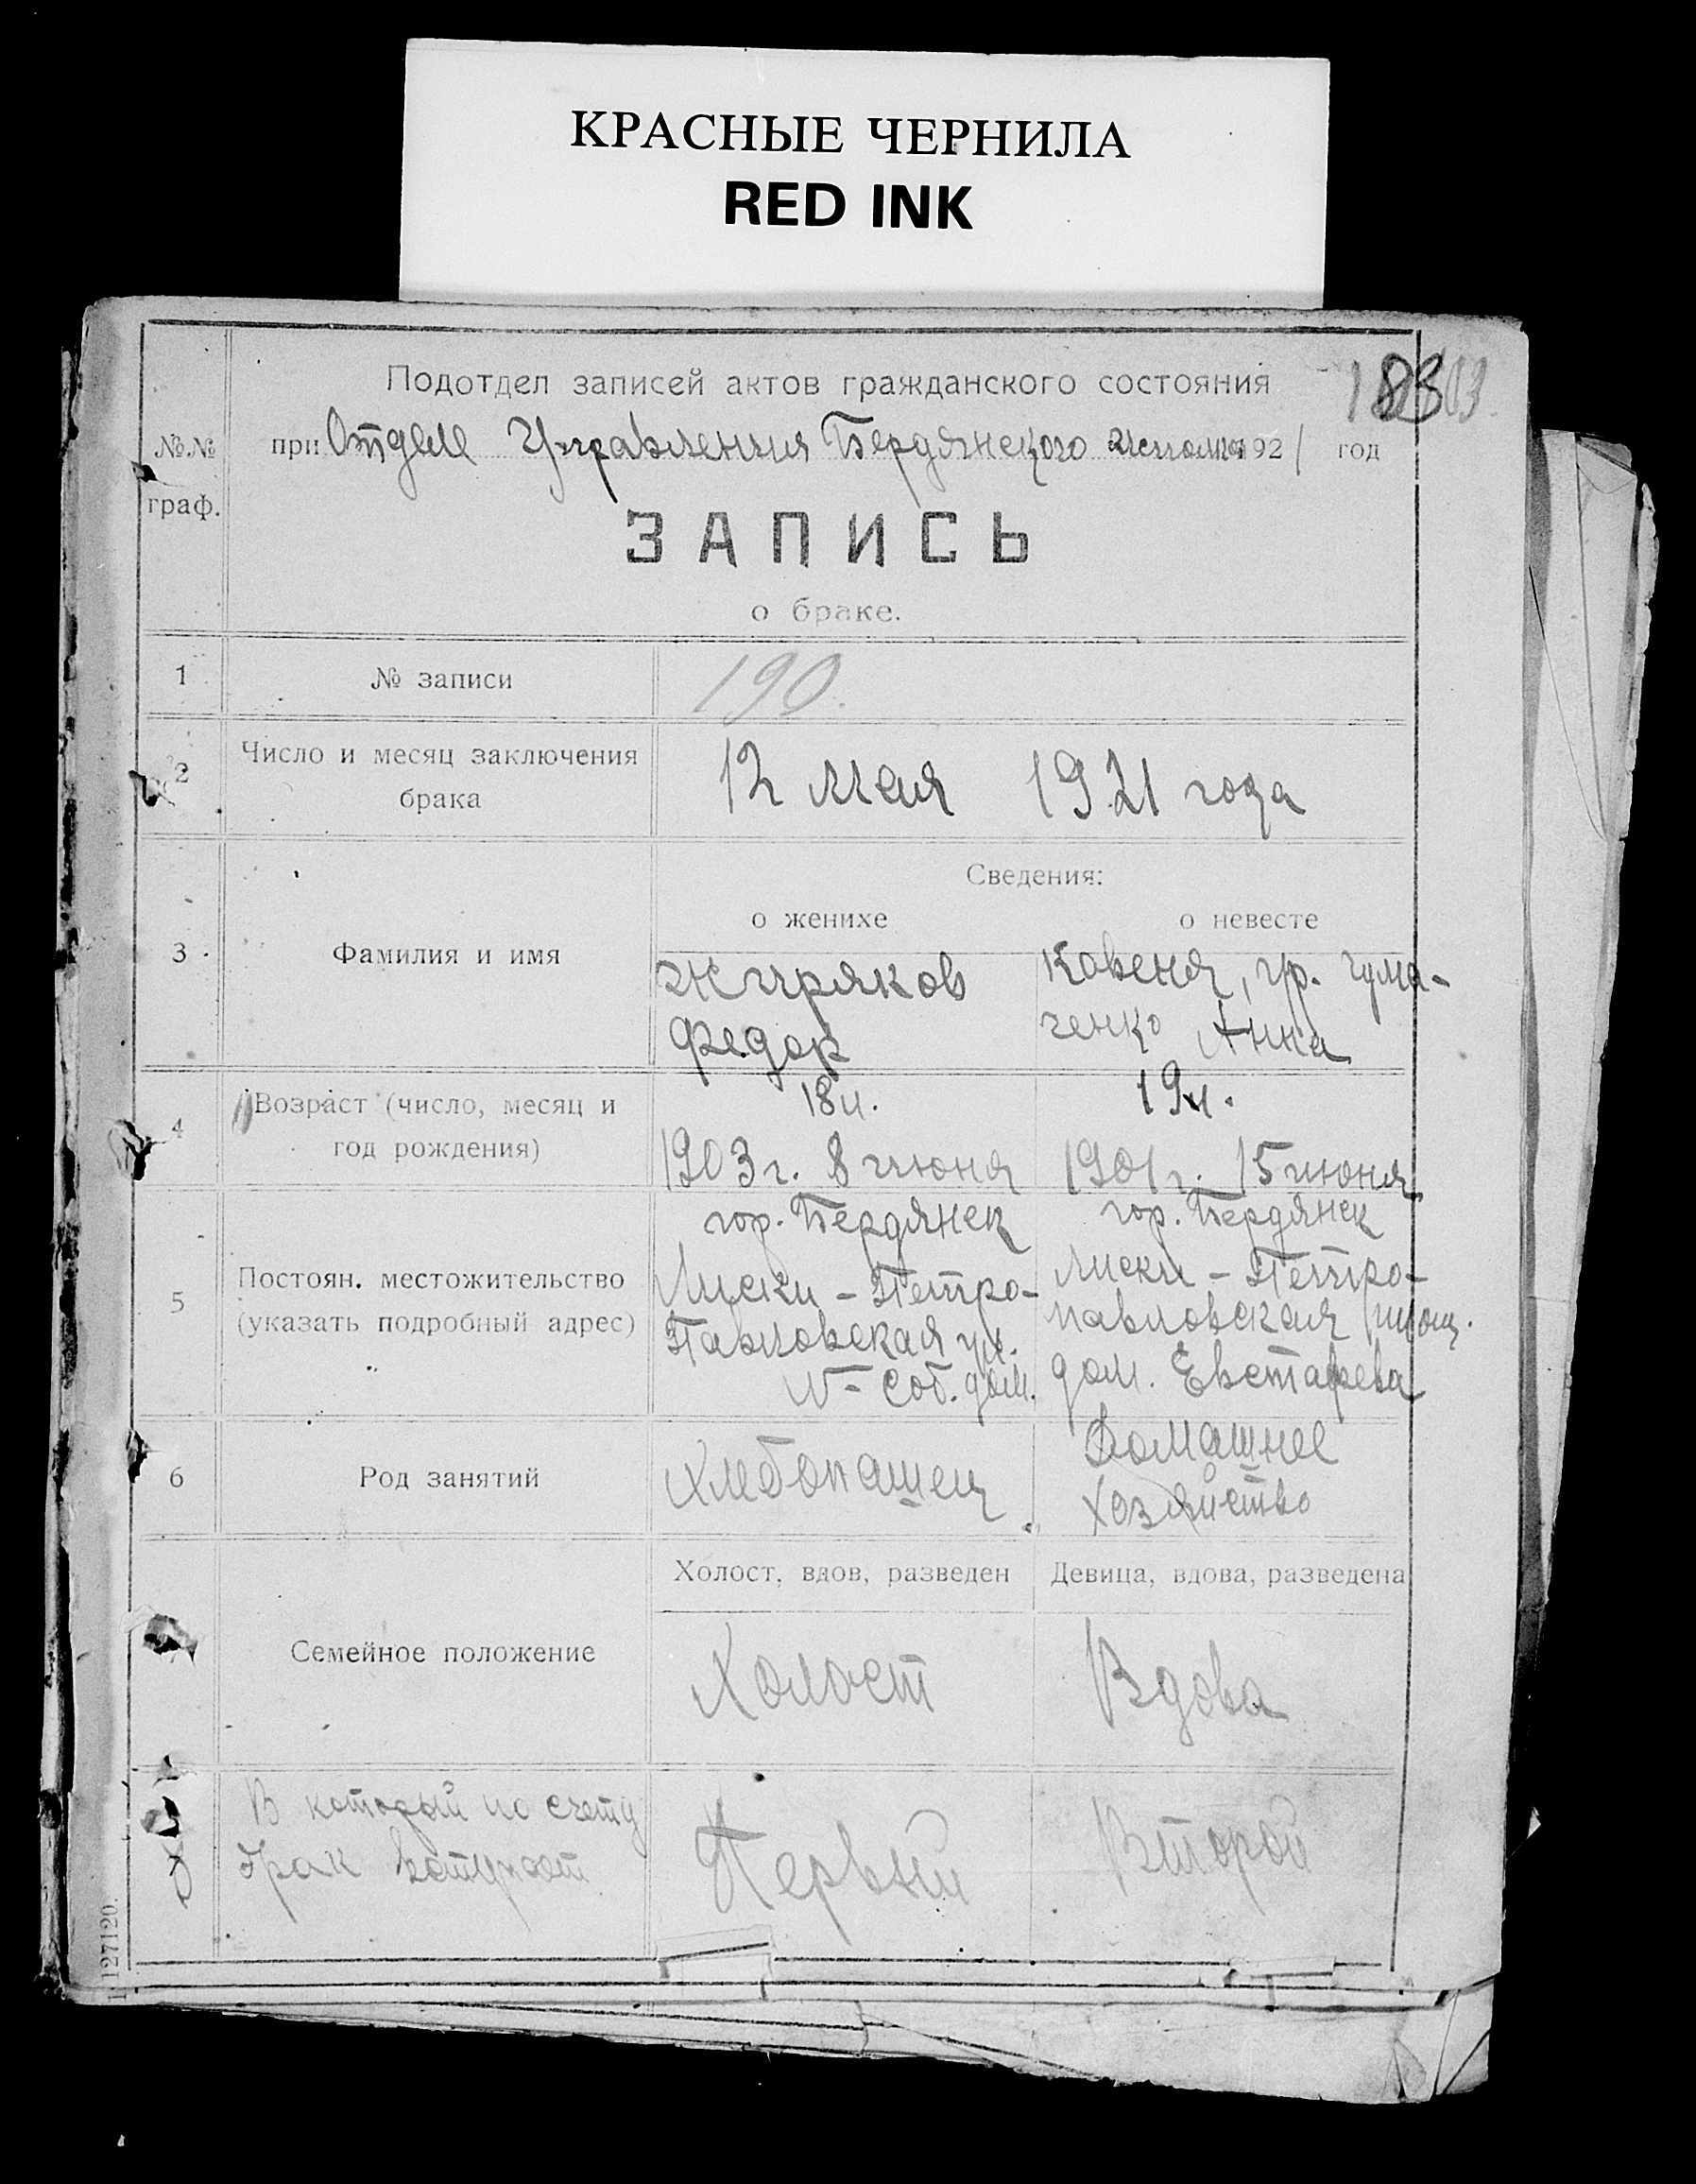 КРАСНЫЕ ЧЕРНИЛА
RED INK
Подотдел записей актов гражданского состояния
183
№.№ граф.
при Отделе Управления Бердянского Исполкома 1921 год
ЗАПИСЬ
о браке.
1 № записи 190.
2 Число и месяц заключения брака
12 мая 1921 года
Сведения:
о женихе о невесте
3 Фамилия и имя
Жиряков
Федор
Ковеня, ур. Чума-
ченко Анна
4 Возраст (число, месяц и
год рождения)
18 л.
1903 г. 8 июня
19 л.
1901 г. 15 июня
5 Постоян. местожительство
(указать подробный адрес)
гор. Бердянск
Лиски - Петро-
Павловская ул.
№ - соб. дом.
гор. Бердянск
Лиски - Петро-
павловская
дом. Евстафева
6 Род занятий
Хлебопашец
Домашнее
хозяйство
Семейное положение
Холост, вдов, разведен
Девица, вдова, разведена
Холост
Вдова
В который по счету
брак вступает
Первый
Второй
127120.